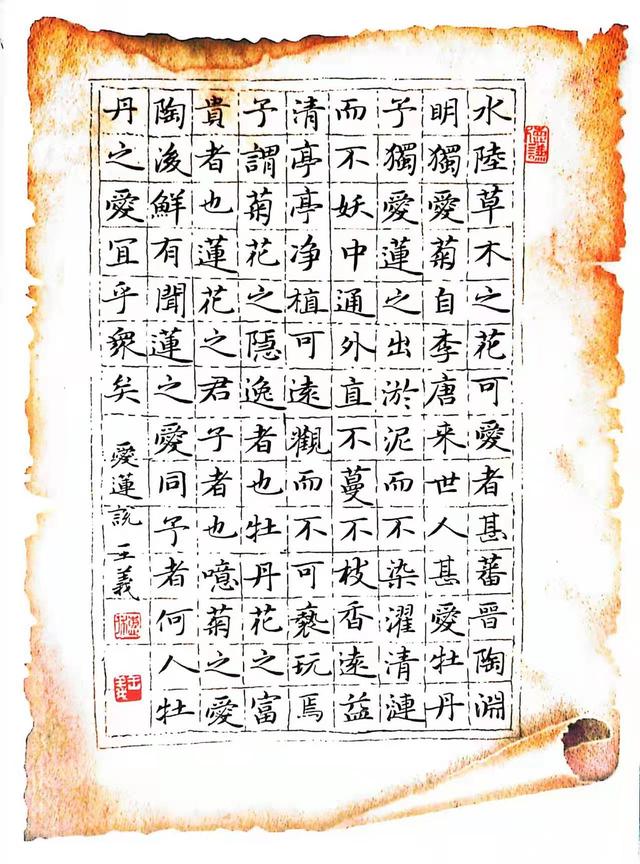 水陸草木之花可愛者甚蕃晉陶淵
明獨愛菊自李唐来世人甚愛牡丹
予獨愛蓮之出淤泥而不染濯清漣
而不妖中通外直不蔓不枝香遠益
清亭亭净植可遠觀而不可褻玩焉
予謂菊花之隱逸者也牡丹花之富
貴者也蓮花之君子者也噫菊之愛
陶後鮮有聞蓮之愛同予者何人牡
丹之愛冝乎衆矣
愛蓮説 王義